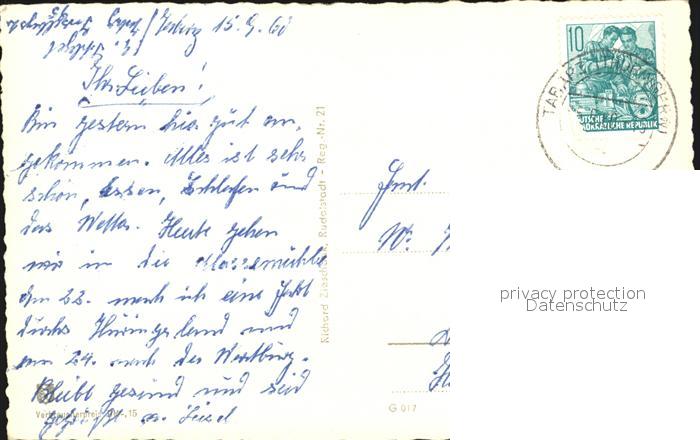 15.9.60
Ihr Lieben!
Bin gestern hier gut an-
gekommen. Alles ist sehr
schön, Essen, Schlafen und
das Wetter. Heute gehen
wir in die
Am 22. mach ich eine Fahrt
durchs Thüringerland und
am 24. nach der Wartburg.
Bleibt gesund und seid
gegrüßt
Verbraucherpreis DM -,15
Richard Zieschank, Rudolstadt - Reg.-Nr. 21
G 017
10
DEUTSCHE
DEMOKRATISCHE REPUBLIK
TABARZ
W.
privacy protection
Datenschutz